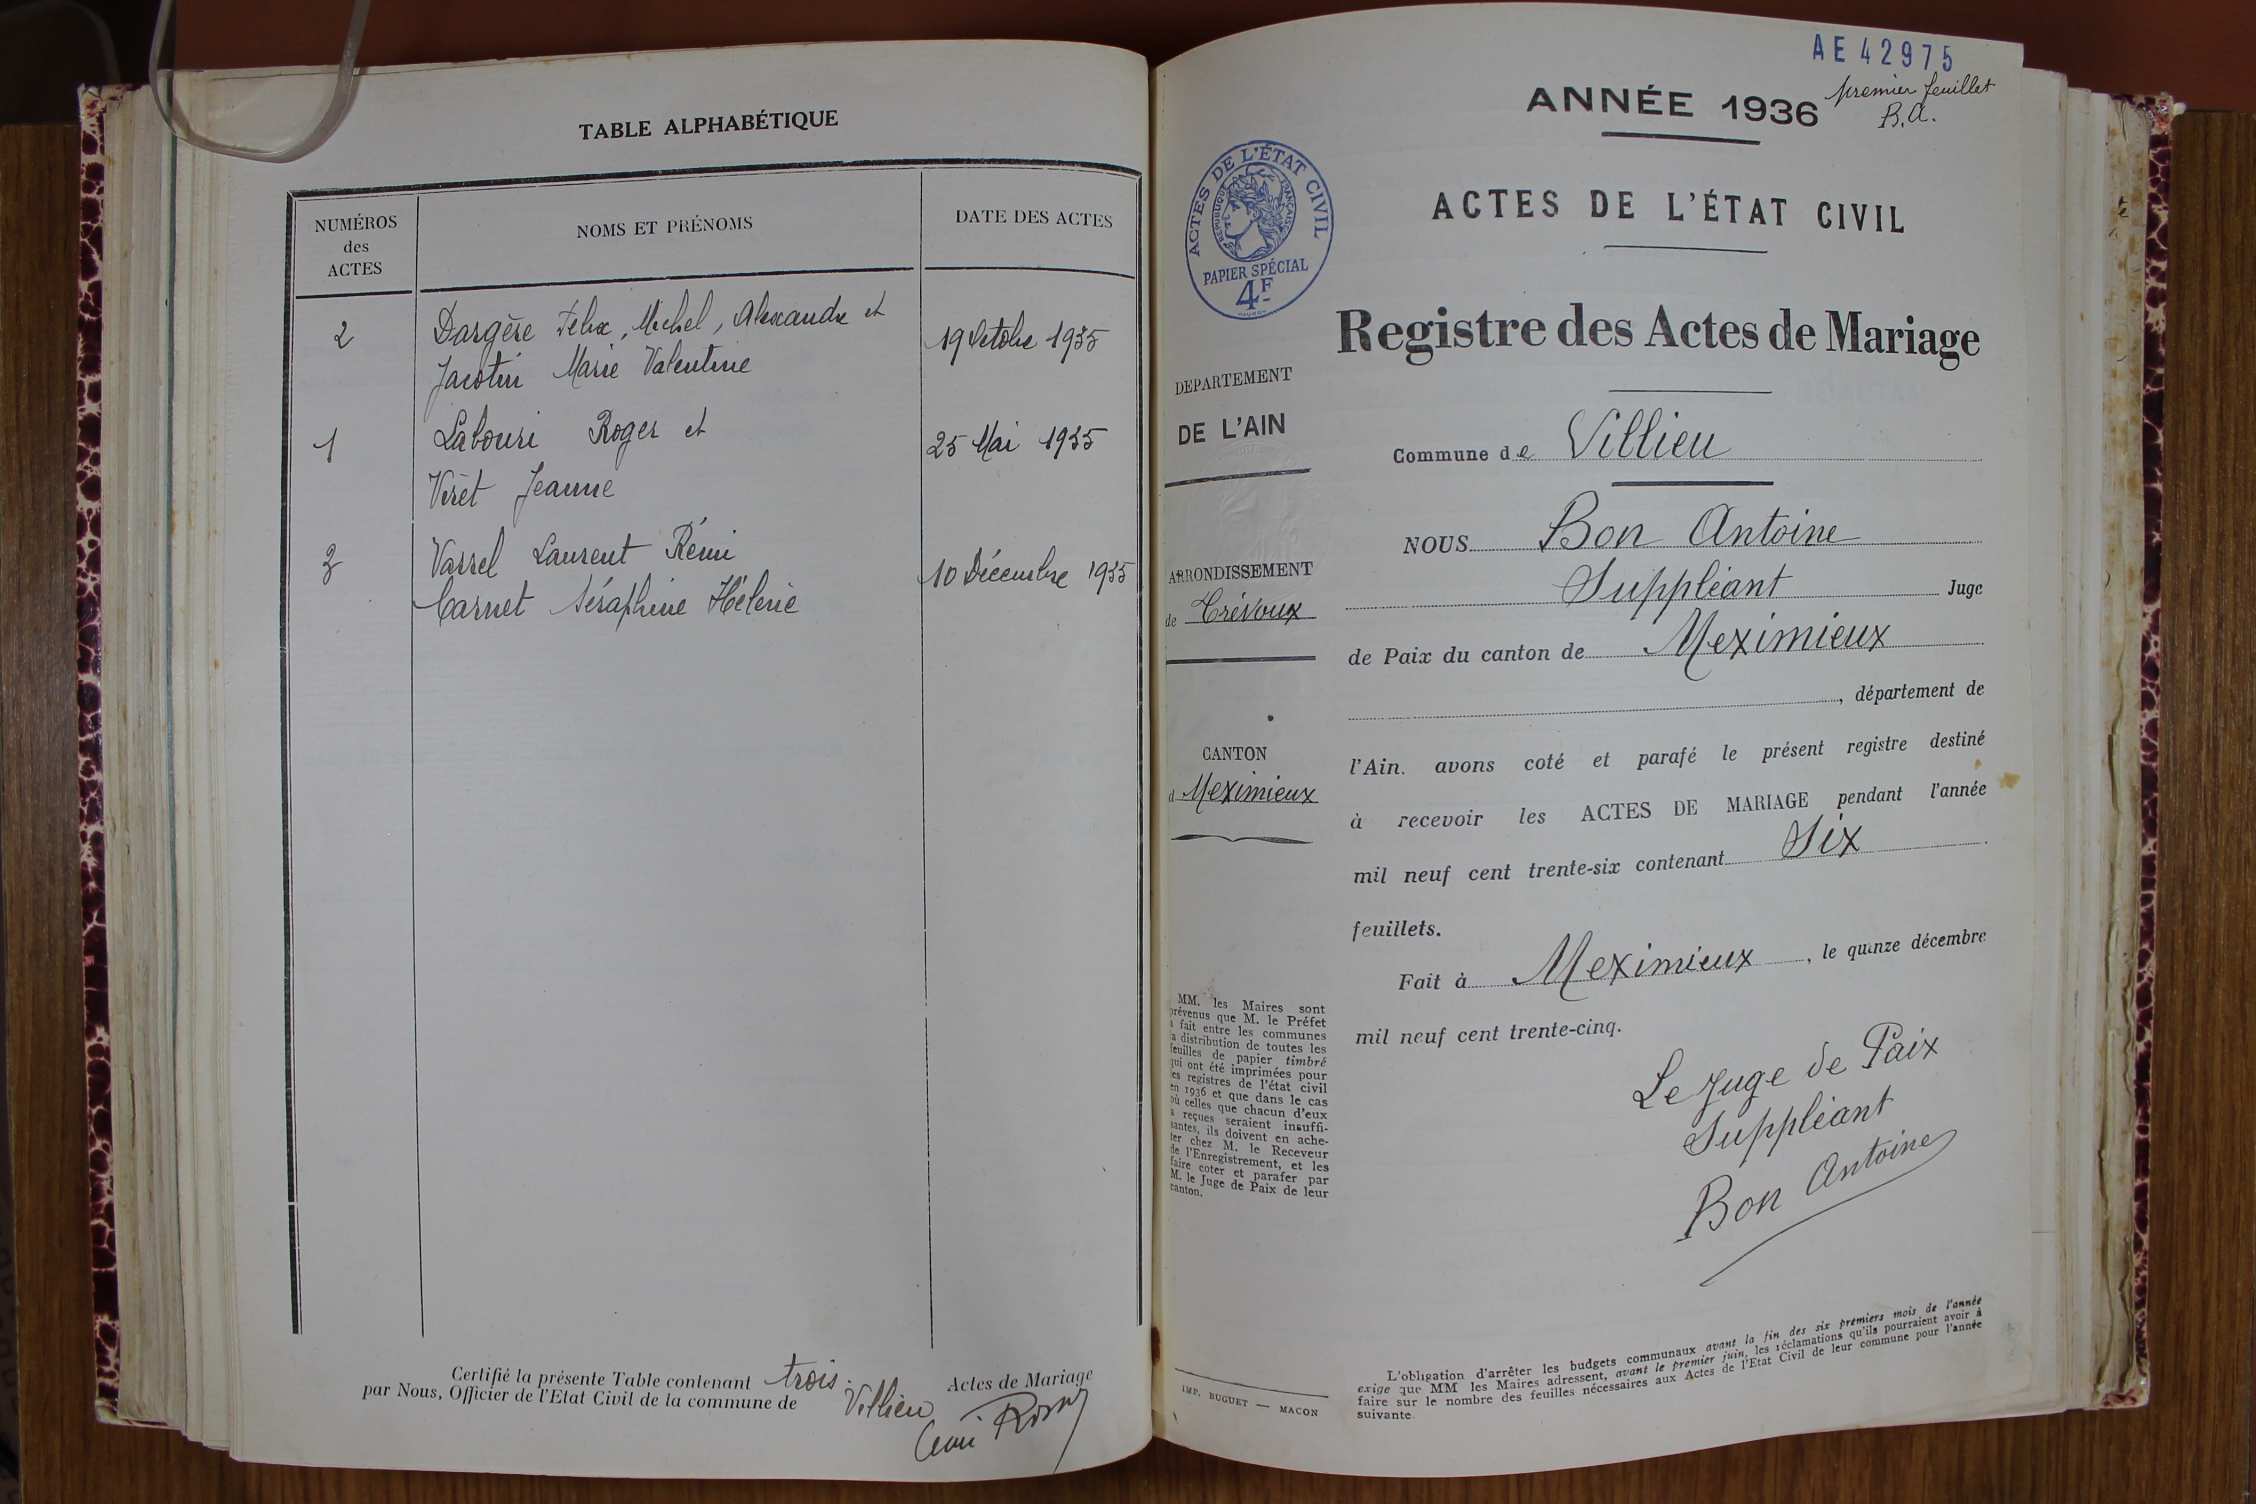 TABLE ALPHABÉTIQUE
NUMÉROS
des
ACTES
NOMS ET PRÉNOMS
DATE DES ACTES
2
Dargère Félix, Michel, Alexandre et
19 Octobre 1935
Jacotin Marie Valentine
1
Labouri Roger et
25 Mai 1935
Viret Jeanne
3
Vassel Laurent Rémi
10 Décembre 1935
Carnet Séraphine Hélène
Certifié la présente Table contenant trois. Actes de Mariage
par Nous, Officier de l'Etat Civil de la commune de Villieu
AE 42975
premier feuillet
B.A.
ANNÉE 1936
ACTES DE L'ÉTAT CIVIL
RÉPUBLIQUE FRANÇAISE
PAPIER SPÉCIAL
4F
ACTES DE L'ÉTAT CIVIL
Registre des Actes de Mariage
DEPARTEMENT
DE L'AIN
ARRONDISSEMENT
de Trévoux
CANTON
d Meximieux
Commune de Villieu
NOUS Bon Antoine
Suppléant Juge
de Paix du canton de Meximieux
, département de
l'Ain. avons coté et parafé le présent registre destiné
à recevoir les ACTES DE MARIAGE pendant l'année
mil neuf cent trente-six contenant Six
feuillets.
Fait à Meximieux, le quinze décembre
mil neuf cent trente-cinq.
Le Juge de Paix
Suppléant
Bon Antoine
MM. les Maires sont
prévenus que M. le Préfet
a fait entre les communes
la distribution de toutes les
feuilles de papier timbré
qui ont été imprimées pour
les registres de l'état civil
en 1936 et que dans le cas
où celles que chacun d'eux
a reçues seraient insuffi-
santes, ils doivent en ache-
ter chez M. le Receveur
de l'Enregistrement, et les
faire coter et parafer par
M. le Juge de Paix de leur
canton.
IMP. BUGUET — MACON
L'obligation d'arrêter les budgets communaux avant la fin des six premiers mois de l'année
exige que MM les Maires adressent, avant le premier juin, les réclamations qu'ils pourraient avoir à
faire sur le nombre des feuilles nécessaires aux Actes de l'Etat Civil de leur commune pour l'année
suivante.